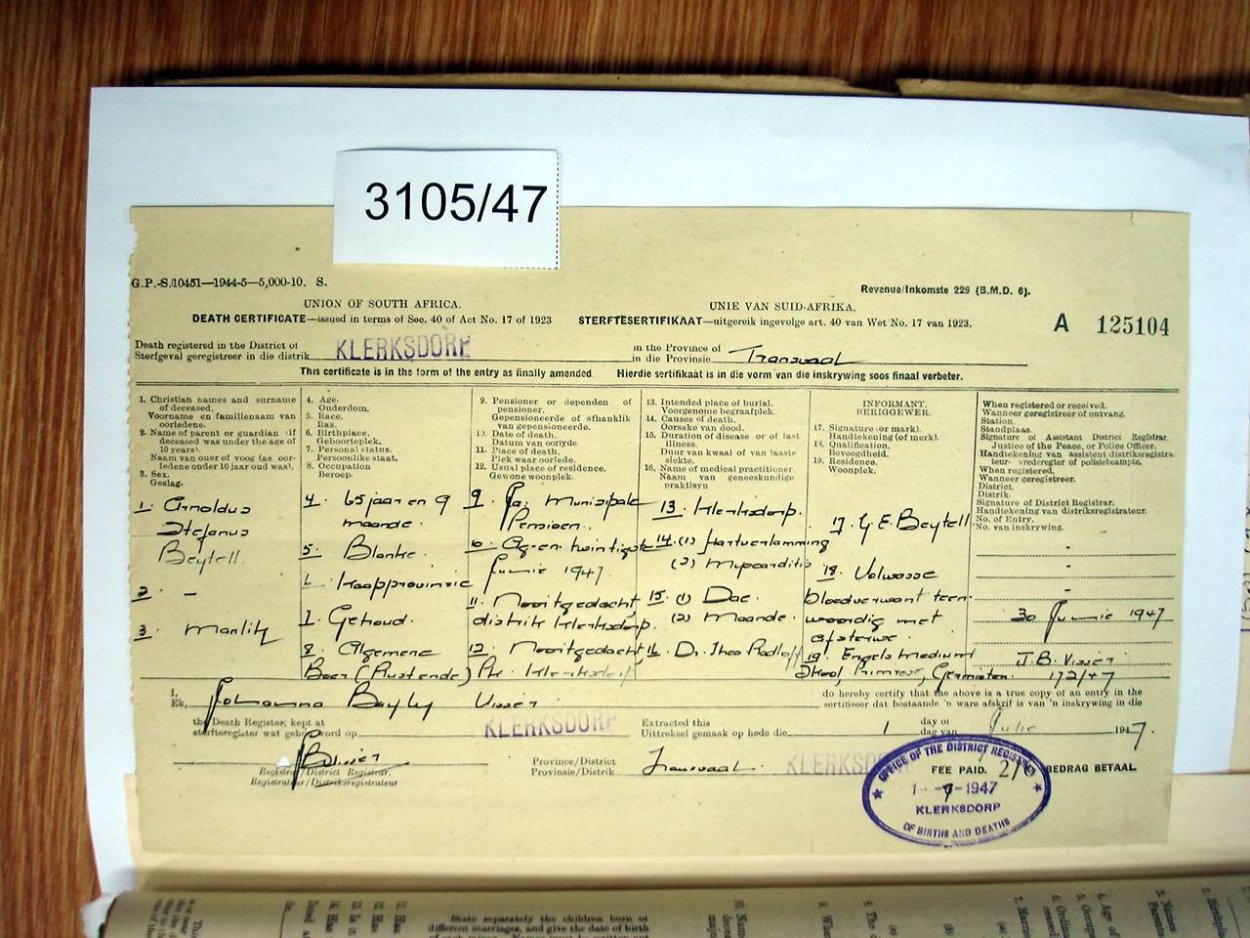 3105/47
G.P.-S.10451—1944-5—5,000-10. S.
Revenue/Inkomste 229 (B.M.D. 6).
UNION OF SOUTH AFRICA.
UNIE VAN SUID-AFRIKA.
DEATH CERTIFICATE—issued in terms of Sec. 40 of Act No. 17 of 1923
STERFTESERTIFIKAAT—uitgereik ingevolge art. 40 van Wet No. 17 van 1923.
A 125104
Death registered in the District of
Sterfgeval geregistreer in die distrik KLERKSDORP
in the Province of
in die Provinsie Transvaal
This certificate is in the form of the entry as finally amended. Hierdie sertifikaat is in die vorm van die inskrywing soos finaal verbeter.
1. Christian names and surname
of deceased.
Voorname en familienaam van
oorledene.
2. Name of parent or guardian (if
deceased was under the age of
10 years).
Naam van ouer of voog (as oor-
ledene onder 10 jaar oud was).
3. Sex.
Geslag.
4. Age.
Ouderdom.
5. Race.
Ras.
6. Birthplace.
Geboorteplek.
7. Personal status.
Persoonlike staat.
8. Occupation
Beroep.
9. Pensioner or dependent of
pensioner.
Gepensioneerde of afhanklik
van gepensioneerde.
10. Date of death.
Datum van oorlyde
11. Place of death.
Plek waar oorlede.
12. Usual place of residence.
Gewone woonplek.
13. Intended place of burial.
Voorgenome begraafplek.
14. Causes of death.
Oorsake van dood.
15. Duration of disease or of last
illness.
Duur van kwaal of van laaste
siekte.
16. Name of medical practitioner.
Naam van geneeskundige
praktisyn
INFORMANT.
BERIGGEWER.
17. Signature (or mark).
Handtekening (of merk).
18. Qualification.
Bevoegdheid.
19. Residence.
Woonplek.
When registered or received.
Wanneer geregistreer of ontvang.
Station.
Standplaas.
Signature of Assistant District Registrar,
Justice of the Peace, or Police Officer.
Handtekening van assistent distriksregistra-
teur- vrederegter of polisieampte.
When registered.
Wanneer geregistreer.
District.
Distrik.
Signature of District Registrar.
Handtekening van distriksregistrateur.
No. of Entry.
No. van inskrywing.
1. Arnoldus
Stefanus
Beytell.
2. —
3. Manlik
4. 65 jaar en 9
maande.
5. Blanke.
6. Kaapprovinsie
7. Gehoud.
8. Algemene
Boer (Rustende)
9. Ja. Munisipale
Pensioen.
10. Agt-en-twintigste
Junie 1947.
11. Nooitgedacht
distrik Klerksdorp.
12. Nooitgedacht
Pk. Klerksdorp
13. Klerksdorp.
14. (1) Hartverlamming
(2) Myocarditis
15. (1) Dae.
(2) Maande.
16. Dr. Theo Radloff
17. G. E. Beytell
18. Volwasse
bloedverwant teen-
woordig met
afsterwe.
19. Engels Medium
Skool Primrose, Germiston.
30 Junie 1947
J. B. Visser
172/47
I,
Ek, Johanna Bayly Visser
do hereby certify that the above is a true copy of an entry in the
sertifiseer dat bostaande 'n ware afskrif is van 'n inskrywing in die
the Death Register, kept at
sterfteregister wat gehou word op KLERKSDORP
Extracted this
Uittreksel gemaak op hede die 1
day of
dag van Julie 1947.
JBVisser
Registrar/District Registrar.
Registrateur/Distriksregistrateur
Province/District
Provinsie/Distrik Transvaal. KLERKSDORP
OFFICE OF THE DISTRICT REGISTRAR
FEE PAID. 2/6 BEDRAG BETAAL.
1-7-1947
KLERKSDORP
OF BIRTHS AND DEATHS
State separately the children born of
different marriages, and give the date of birth